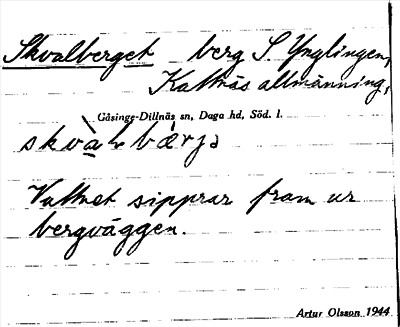 Skvalberget berg S Ynglingen,
Kattnäs allmänning,
Gåsinge-Dillnäs sn, Daga hd, Söd. l.
Vattnet sipprar fram ur
bergväggen.
Artur Olsson 1944